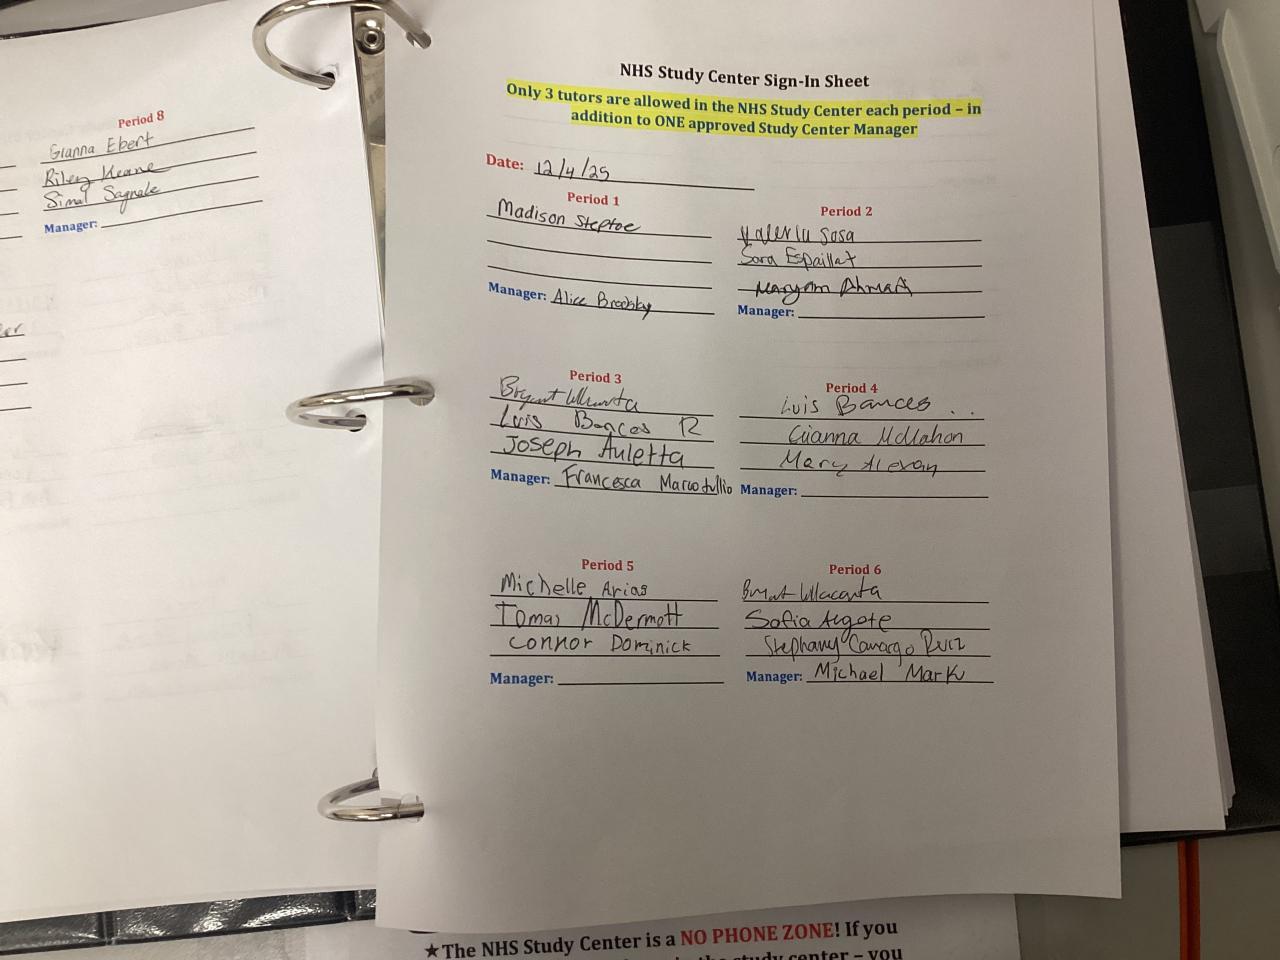 Period 8
Gianna Ebert
Riley Keane
Manager:
NHS Study Center Sign-In Sheet
Only 3 tutors are allowed in the NHS Study Center each period – in
addition to ONE approved Study Center Manager
Date: 12/4/25
Period 1
Madison Steptoe
Manager: Alice Brodsky
Period 2
Valeria Sosa
Sara Espaillat
Maryam Ahmad
Manager:
Period 3
Bryant
Luis Bances R
Joseph Auletta
Manager: Francesca Marcotullio
Period 4
Luis Bances ..
Gianna McMahon
Mary
Manager:
Period 5
Michelle Arias
Tomas McDermott
Connor Dominick
Manager:
Period 6
Sofia Argote
Stephany Camargo Ruiz
Manager: Michael Mark
★The NHS Study Center is a NO PHONE ZONE! If you
the study center – you